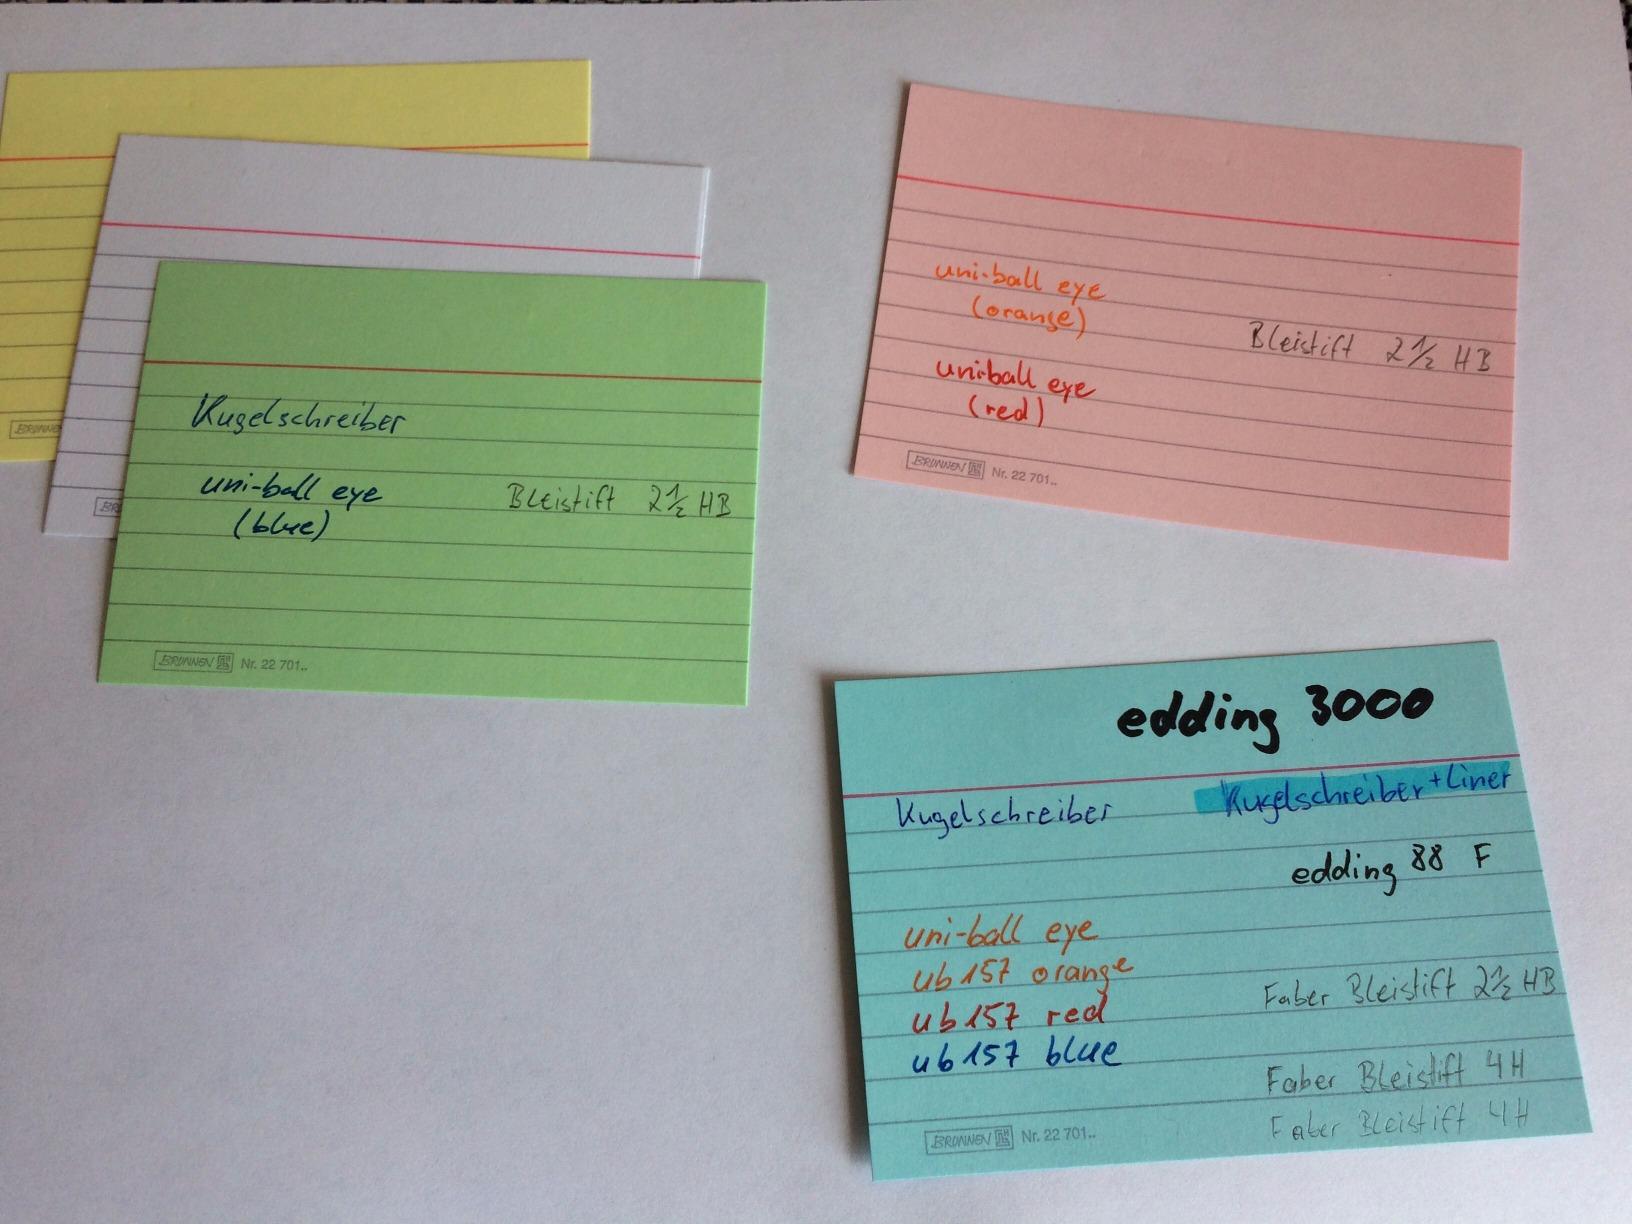 BRUNNE
BR
Kugelschreiber
uni-ball eye
(blue)
Bleistift 2 1/2 HB
BRUNNEN Nr. 22 701..
uni-ball eye
(orange)
uni-ball eye
(red)
Bleistift 2 1/2 HB
BRUNNEN Nr. 22 701..
edding 3000
Kugelschreiber
Kugelschreiber + Liner
edding 88 F
uni-ball eye
ub 157 orange
ub 157 red
ub 157 blue
Faber Bleistift 2 1/2 HB
Faber Bleistift 4H
Faber Bleistift 4H
BRUNNEN Nr. 22 701..